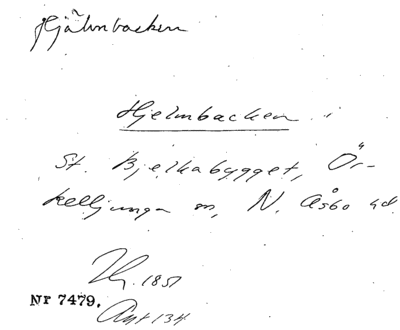 Hjälmbacken
Hjelmbacken i
St. Bjelkabygget, Ör-
kelljunga sn, N. Åsbo hd.
Hy. 1851
Nr 7479.
Ant 134